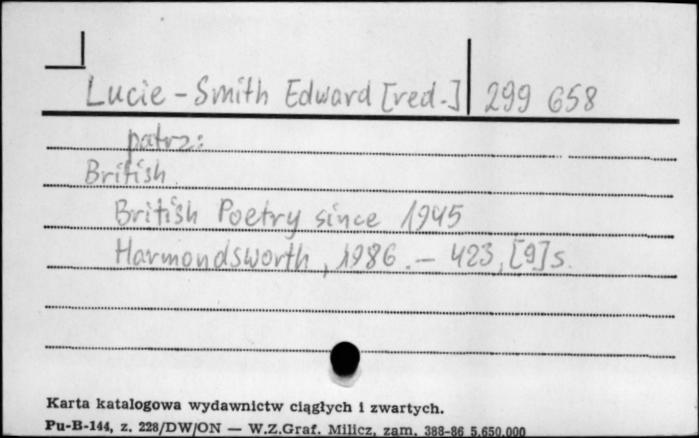 Lucie-Smith Edward [red.] 299 658
patrz:
British
British Poetry since 1945
Harmondsworth, 1986. - 423, [9] s.
Karta katalogowa wydawnictw ciągłych i zwartych.
Pu-B-144, z. 228/DW/ON — W.Z.Graf. Milicz, zam. 388-86 5.650.000